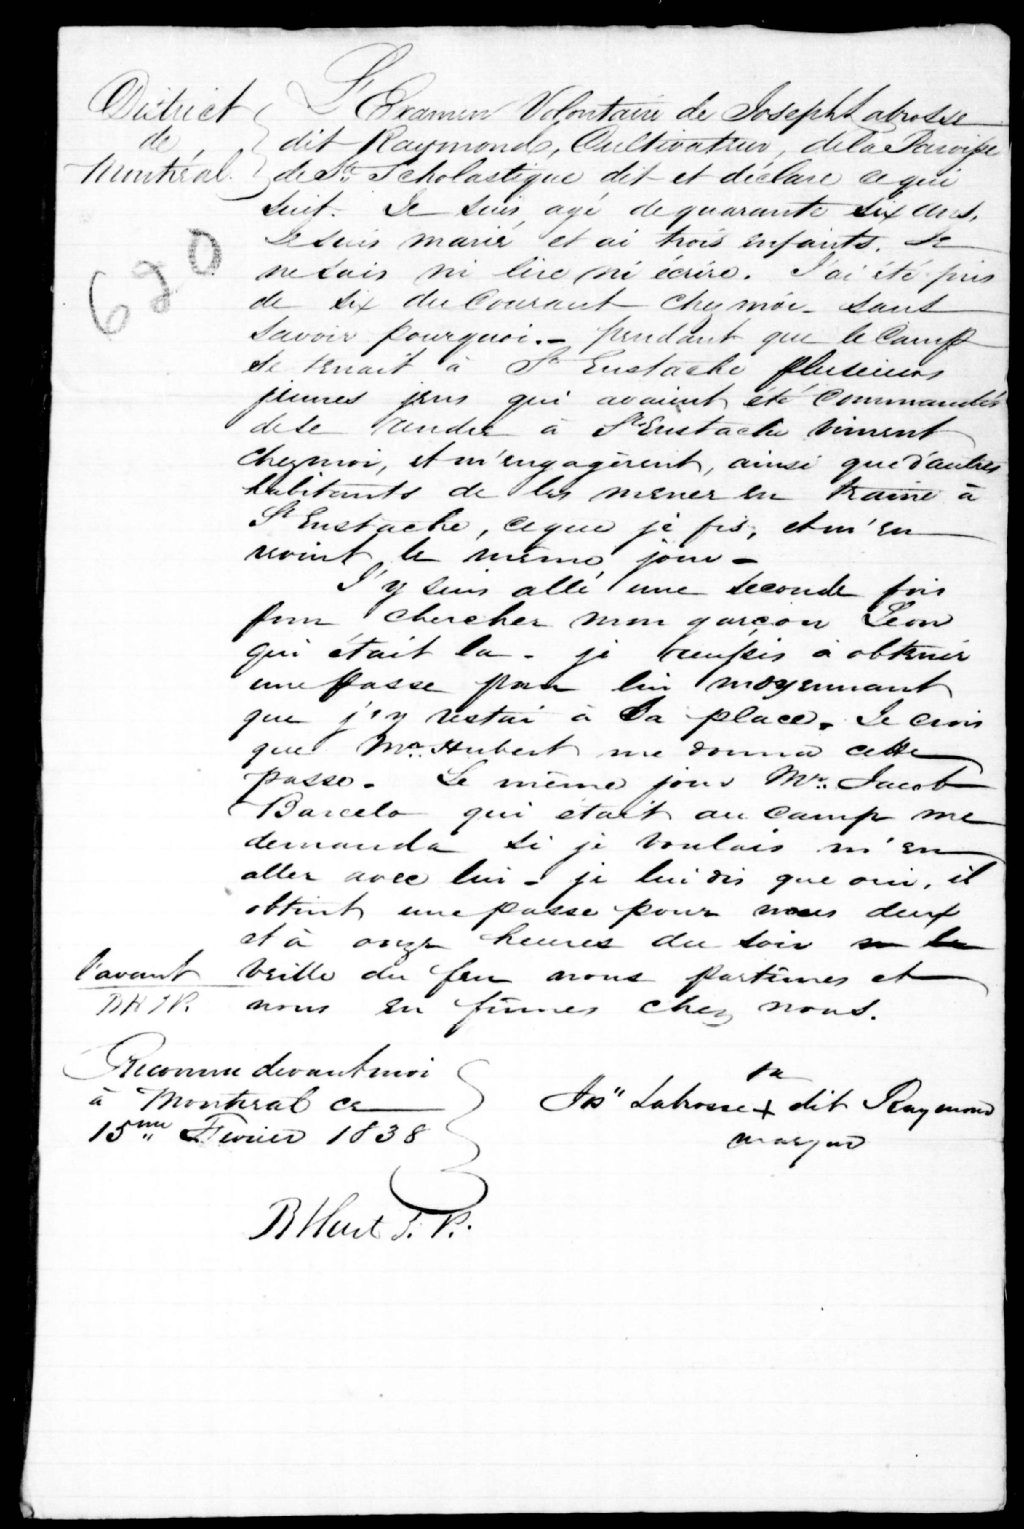 District
de
Montréal.
L'Examen Volontaire de Joseph Labrosse
dit Raymond, Cultivateur, de la Paroisse
de Ste Scholastique dit et déclare ce qui
suit. Je suis agé de quarante six ans.
Je suis marié et ai trois enfants. Je
ne sais ni lire ni écrire. J'ai été pris
de six du Courant chez moi sans
savoir pourquoi. - pendant que le Camp
se tenait à St Eustache plusieurs
jeunes jens qui avaient été commandés
de se rendre à St Eustache vinrent
chez moi, et m'engagèrent, ainsi que d'autres
habitants de les mener en traine à
St Eustache, ce que je fis, et m'en
revint le même jour -
J'y suis allé une seconde fois
pour chercher mon garçon Léon
qui était la - je reussis à obtenir
une passe pour lui moyennant
que j'y restai à sa place. Je crois
que Mr. Hubert me donna cette
passe. Le même jour Mr. Jacob
Barcelo qui était au camp me
demanda si je voulais m'en
aller avec lui - je lui dis que oui, il
obtint une passe pour nous deux
et à onze heures du soir
l'avant veille du feu nous partimes et
nous en fûmes chez nous.
Reconnu devant moi
à Montreal ce
15me Fevrier 1838
sa
Jos Labrosse + dit Raymond
marque
620